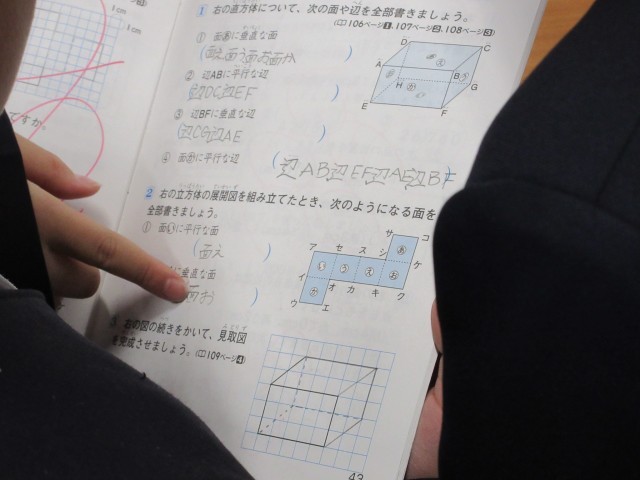 1 cm
1 cm
ですか。
1 右の直方体について、次の面や辺を全部書きましょう。
106ページ1, 107ページ2, 108ページ3
① 面に垂直な面
② 辺ABに平行な辺
(辺DC辺EF )
③ 辺BFに垂直な辺
④ 面に平行な辺
D
C
A
B
H
G
E
F
2 右の立方体の展開図を組み立てたとき、次のようになる面を
全部書きましょう。
① 面に平行な面
(面え )
に垂直な面
サ コ
ア セ ス シ
ケ
イ
オ カ キ ク
ウ エ
3 右の図の続きをかいて、見取図
を完成させましょう。(109ページ4)
43